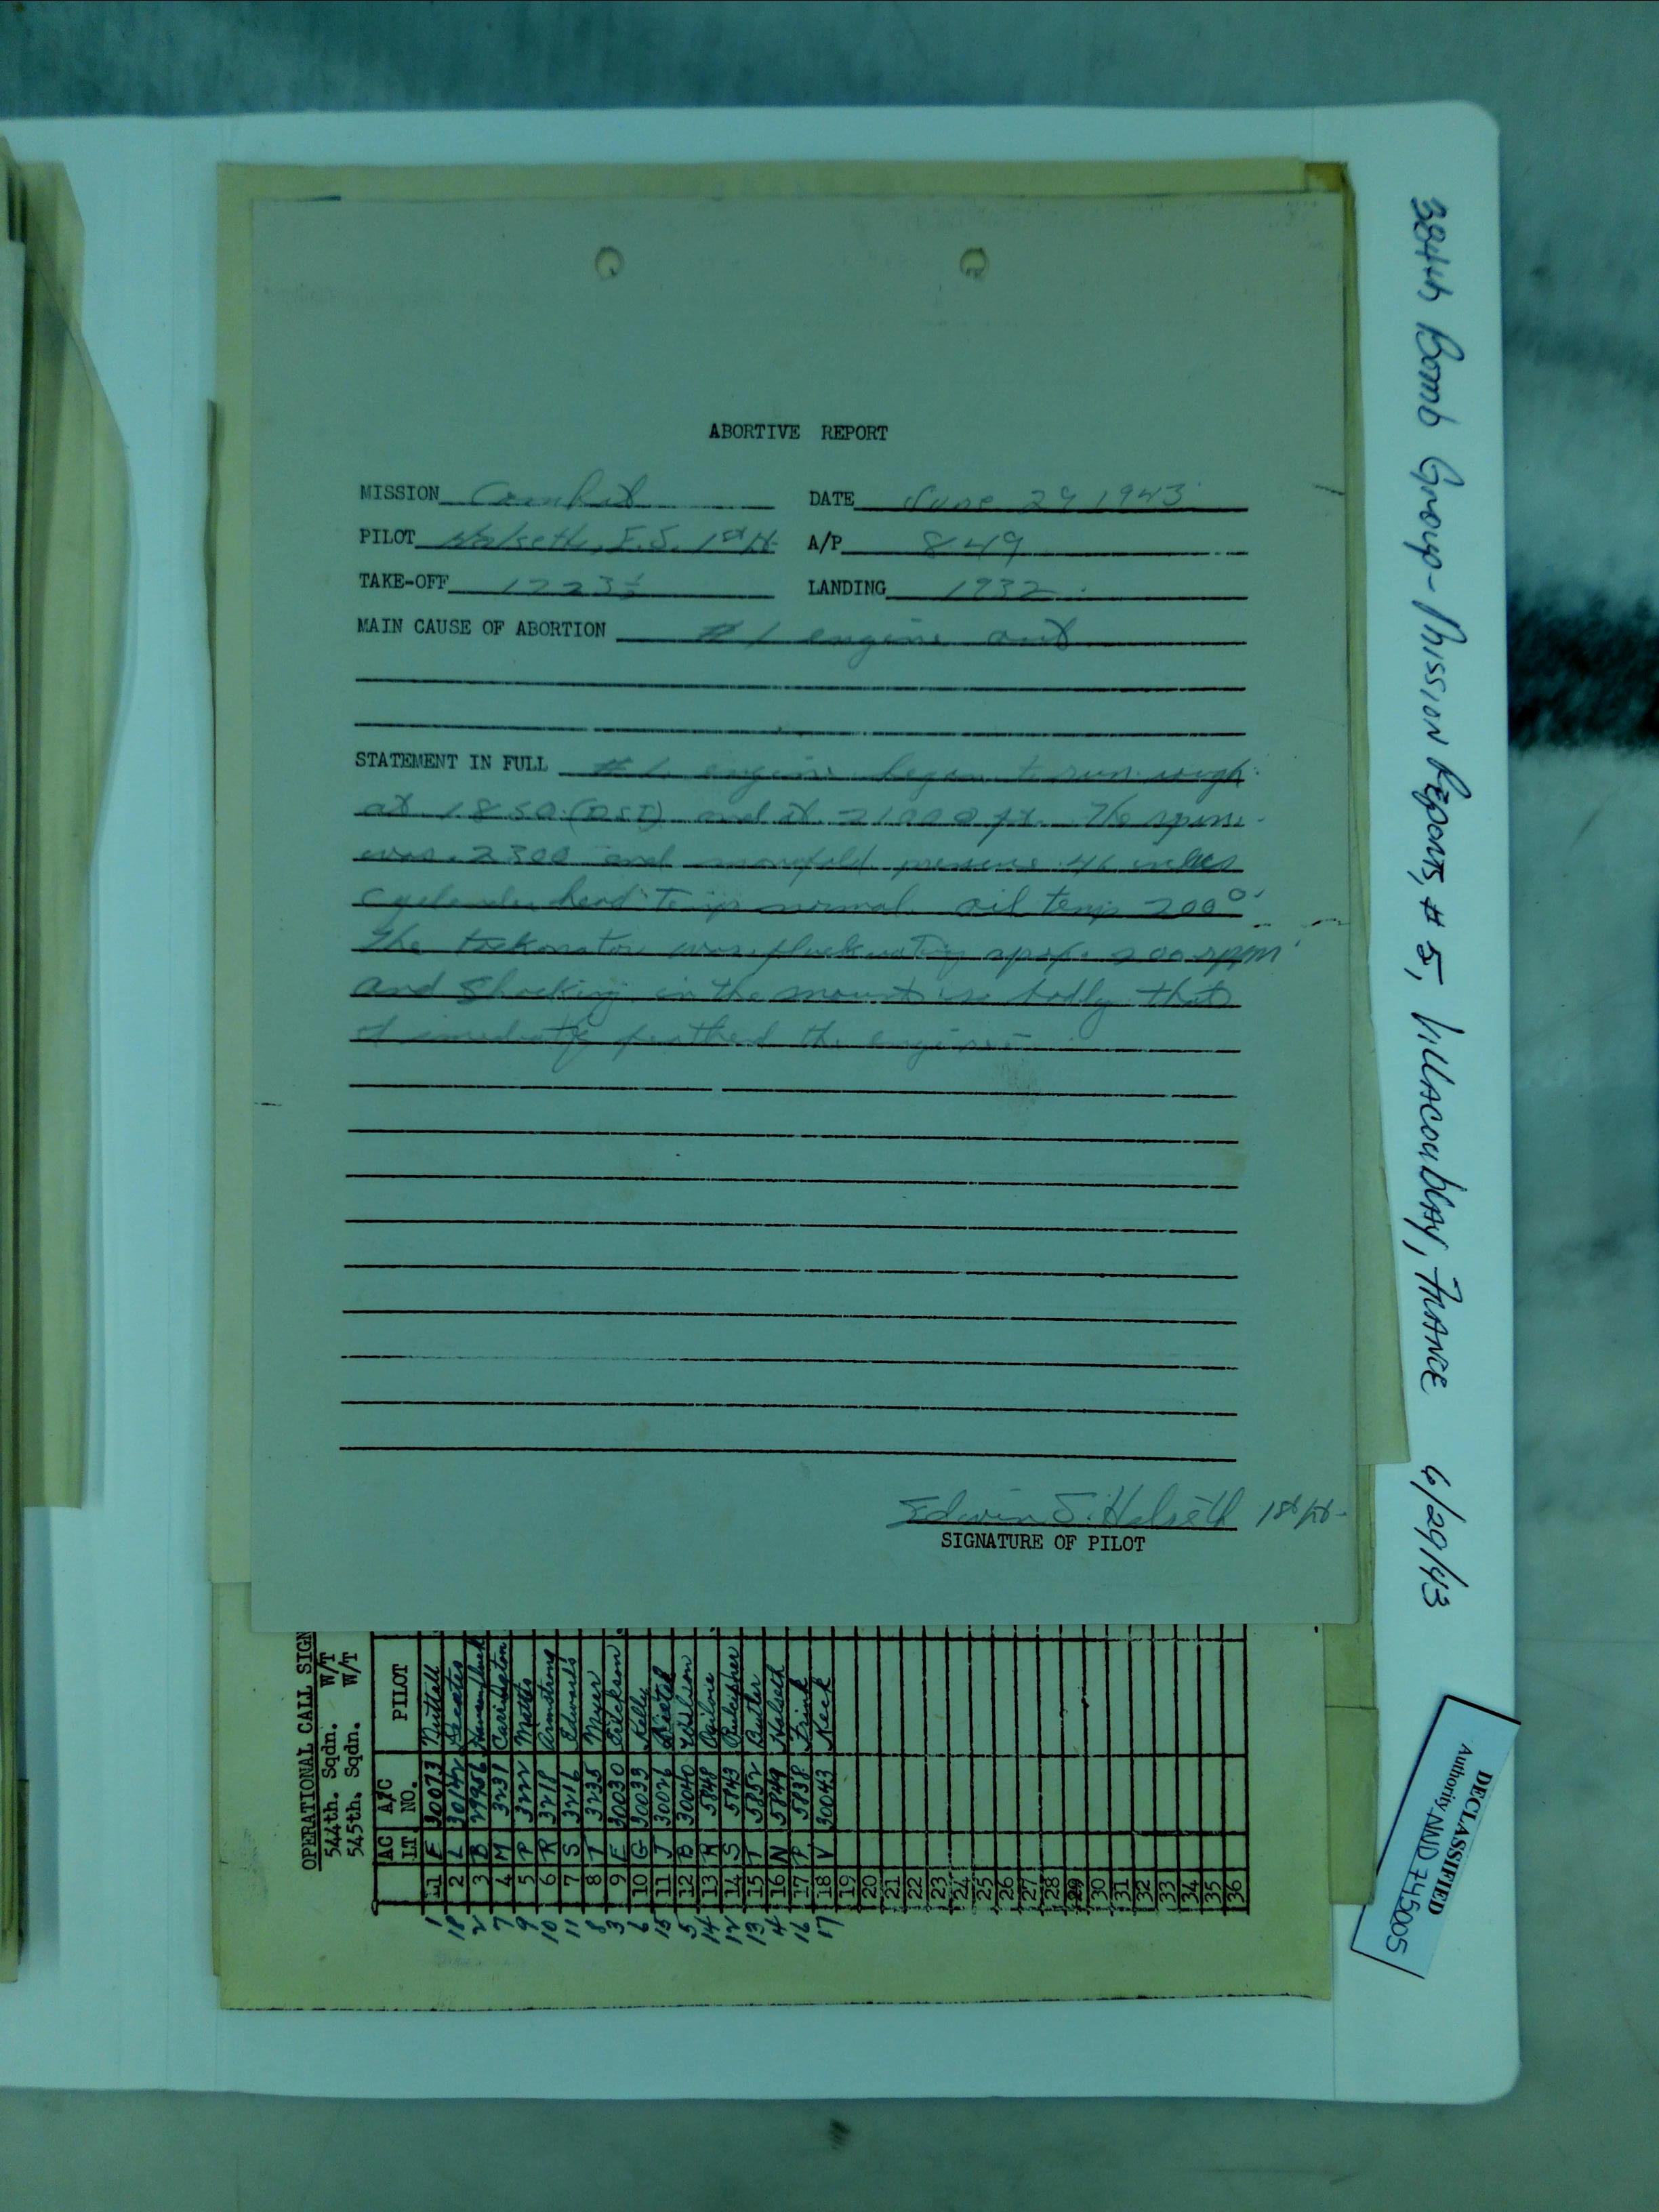 ABORTIVE REPORT
MISSION Combat DATE June 29 1943
PILOT Halseth, E.S. 1st Lt. A/P 849
TAKE-OFF 1723½ LANDING 1932
MAIN CAUSE OF ABORTION #1 engine out
STATEMENT IN FULL #1 engine began to run rough
at 1850 (DST) and at 21000 ft. The
was 2300 and pressure 46 inches
head temp normal. oil temp 200°
The was 200 rpm
and in the mount so badly that
I the engine
Edwin S. Halseth 1st Lt.
SIGNATURE OF PILOT
OPERATIONAL CALL SIGN
544th. Sqdn. W/T
545th. Sqdn. W/T
AC LT. A/C NO. PILOT
1 1 F 30073 Nuttall
18 2 L 30142
2 3 B 29956
7 4 M 3231 Carrington
9 5 P 3222 Mattes
10 6 R 3218 Armstrong
11 7 S 3216 Edwards
8 8 T 3235 Myer
3 9 E 30030 Erickson
6 10 G 30033 Kelly
15 11 J 30026
5 12 B 30040 Wilson
14 13 R 5848 Ogilvie
12 14 S 5843 Pulcipher
13 15 T 5852 Butler
4 16 N 5849 Halseth
16 17 P 5838 Frink
17 18 V 30043 Keck
19
20
21
22
23
24
25
26
27
28
29
30
31
32
33
34
35
36
384th Bomb Group - Mission Reports, #5, Villacoublay, France 6/29/43
DECLASSIFIED
Authority NND 745005